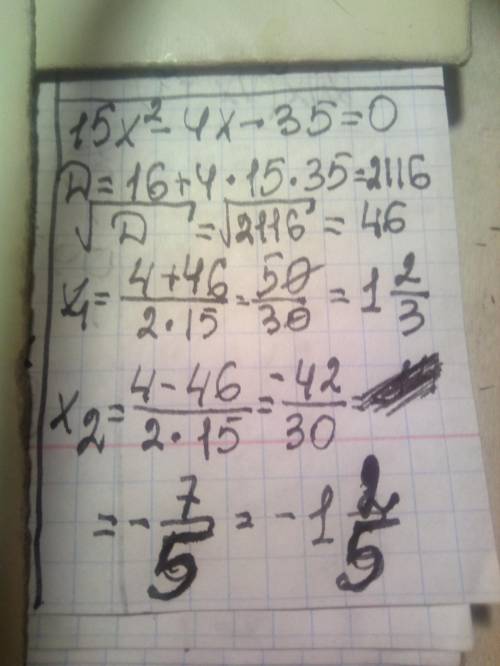 15x² - 4x - 35 = 0
D = 16 + 4 · 15 · 35 = 2116
√D = √2116 = 46
x₁ = (4 + 46)/(2 · 15) = 50/30 = 1 2/3
x₂ = (4 - 46)/(2 · 15) = -42/30 =
= - 7/5 = - 1 2/5